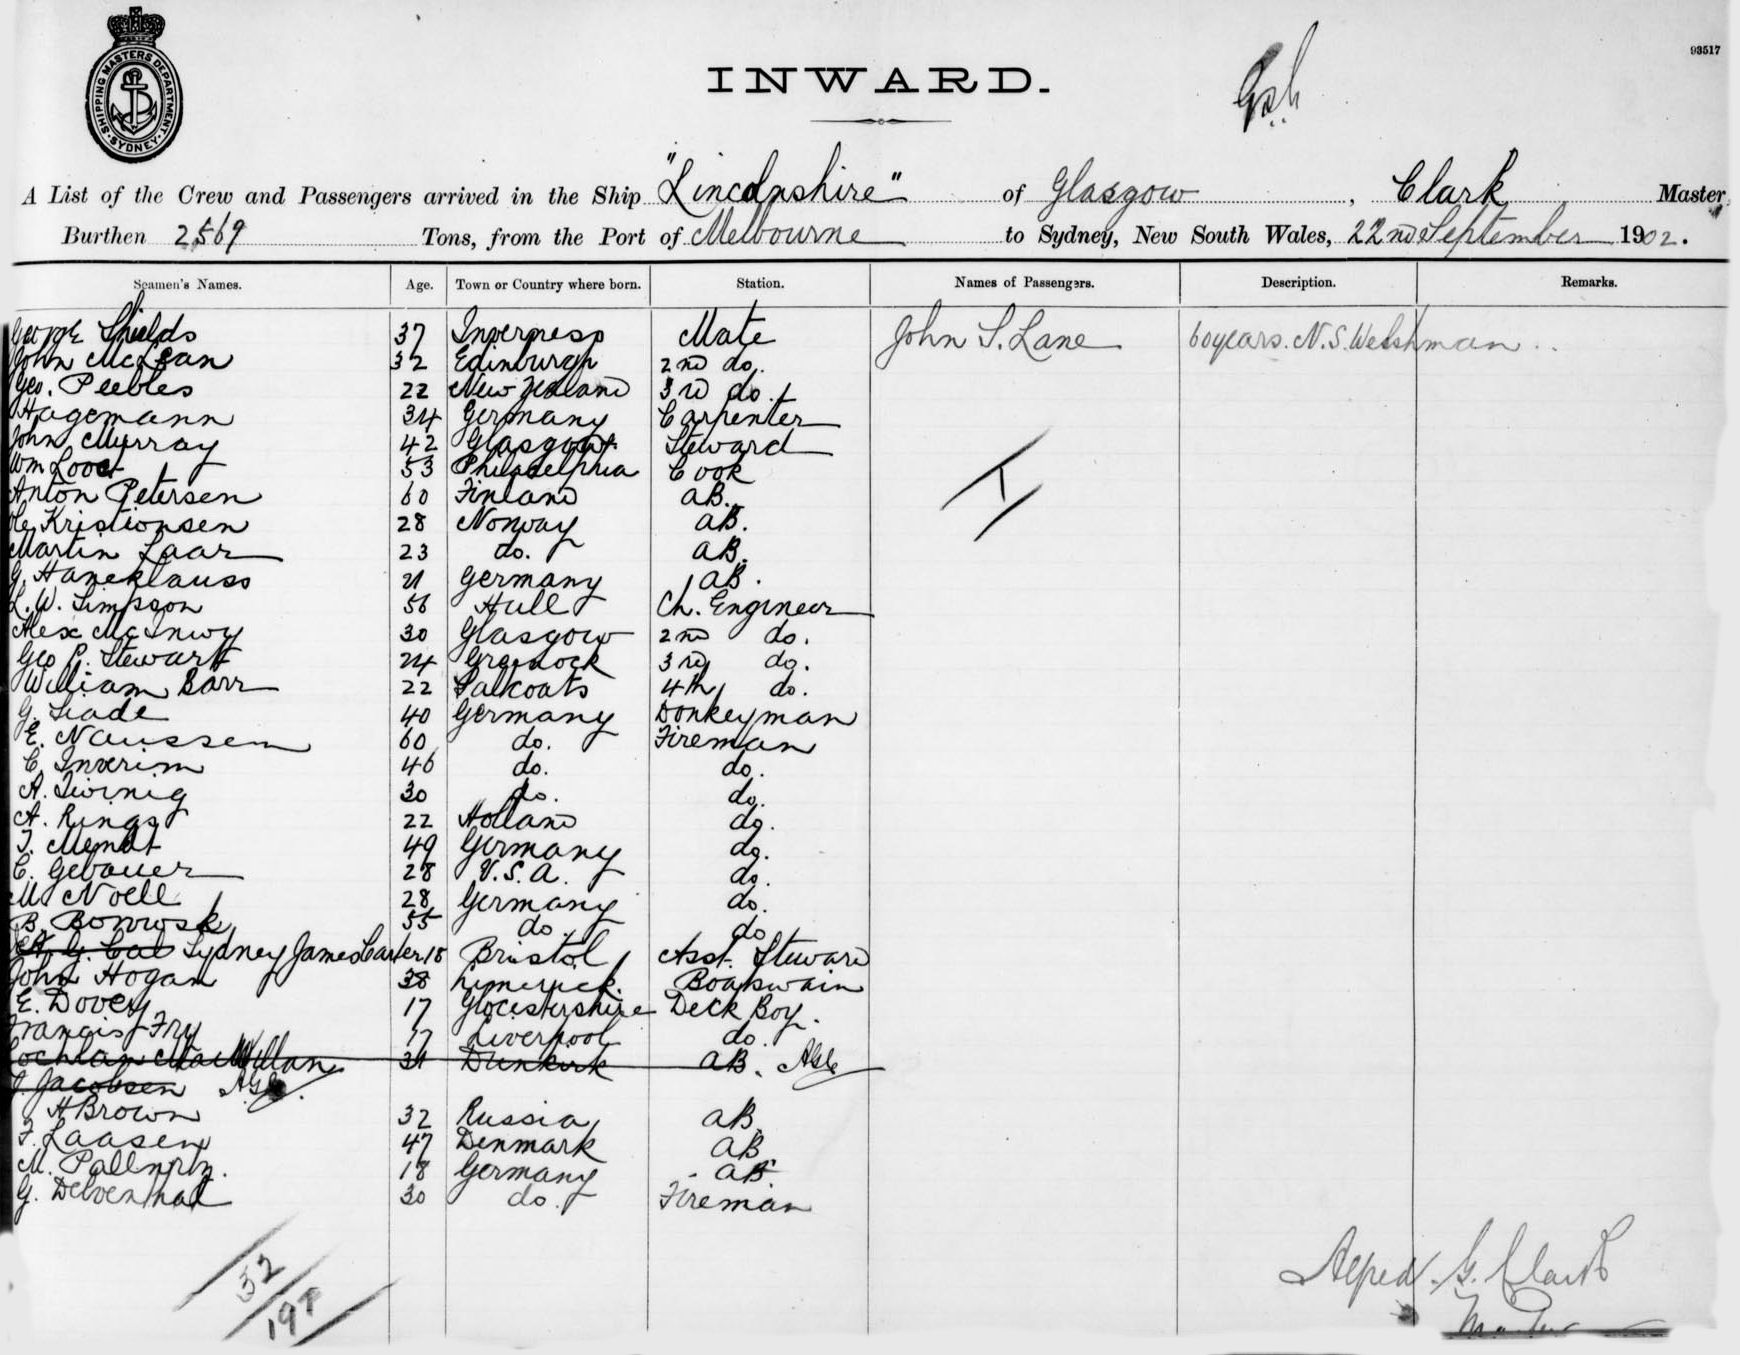 93517
SHIPPING MASTERS DEPARTMENT
SYDNEY
INWARD.
A List of the Crew and Passengers arrived in the Ship "Lincolnshire" of Glasgow, Clark Master,
Burthen 2569 Tons, from the Port of Melbourne to Sydney, New South Wales, 22nd September 1902.
Seamen's Names. Age. Town or Country where born. Station. Names of Passengers. Description. Remarks.
George Shields 37 Inverness Mate John S. Lane 60 years. N.S. Welshman
John McLean 32 Edinburgh 2nd do.
Geo. Peebles 22 New Zealand 3rd do.
Hagemann 34 Germany Carpenter
John Murray 42 Glasgow Steward
Wm Loost 53 Philadelphia Cook
Anton Petersen 60 Finland AB.
Ole Kristionsen 28 Norway AB.
Martin Laar 23 do. AB.
G. Haneklauss 21 Germany AB.
L. W. Simpson 56 Hull Ch. Engineer
Alex McInwy 30 Glasgow 2nd do.
Geo P. Stewart 24 Greenock 3rd do.
William Barr 22 Saltcoats 4th do.
G. Liade 40 Germany Donkeyman
E. Naussem 60 do. Fireman
C. Inverim 46 do. do.
A. 30 do. do.
A. Rings 22 Holland do.
T. Memdt 49 Germany do.
C. Gebauer 28 U.S.A. do.
M Noell 28 Germany do.
B. Borowsk 55 do. do
A. G. Cal Sydney James Carter 18 Bristol Asst. Steward
John Hogan 38 Limerick. Boatswain
E. Dovey 17 Glocestershire Deck Boy.
Francis Fry 17 Liverpool do.
Lochlan MacMillan 31 Dunkirk AB.
J. Jacobsen
A Brown 32 Russia AB.
F. Laasen 47 Denmark AB
M. 18 Germany AB.
G. Delventhal 30 do. Fireman
32
Alfred. G. Clark
Master